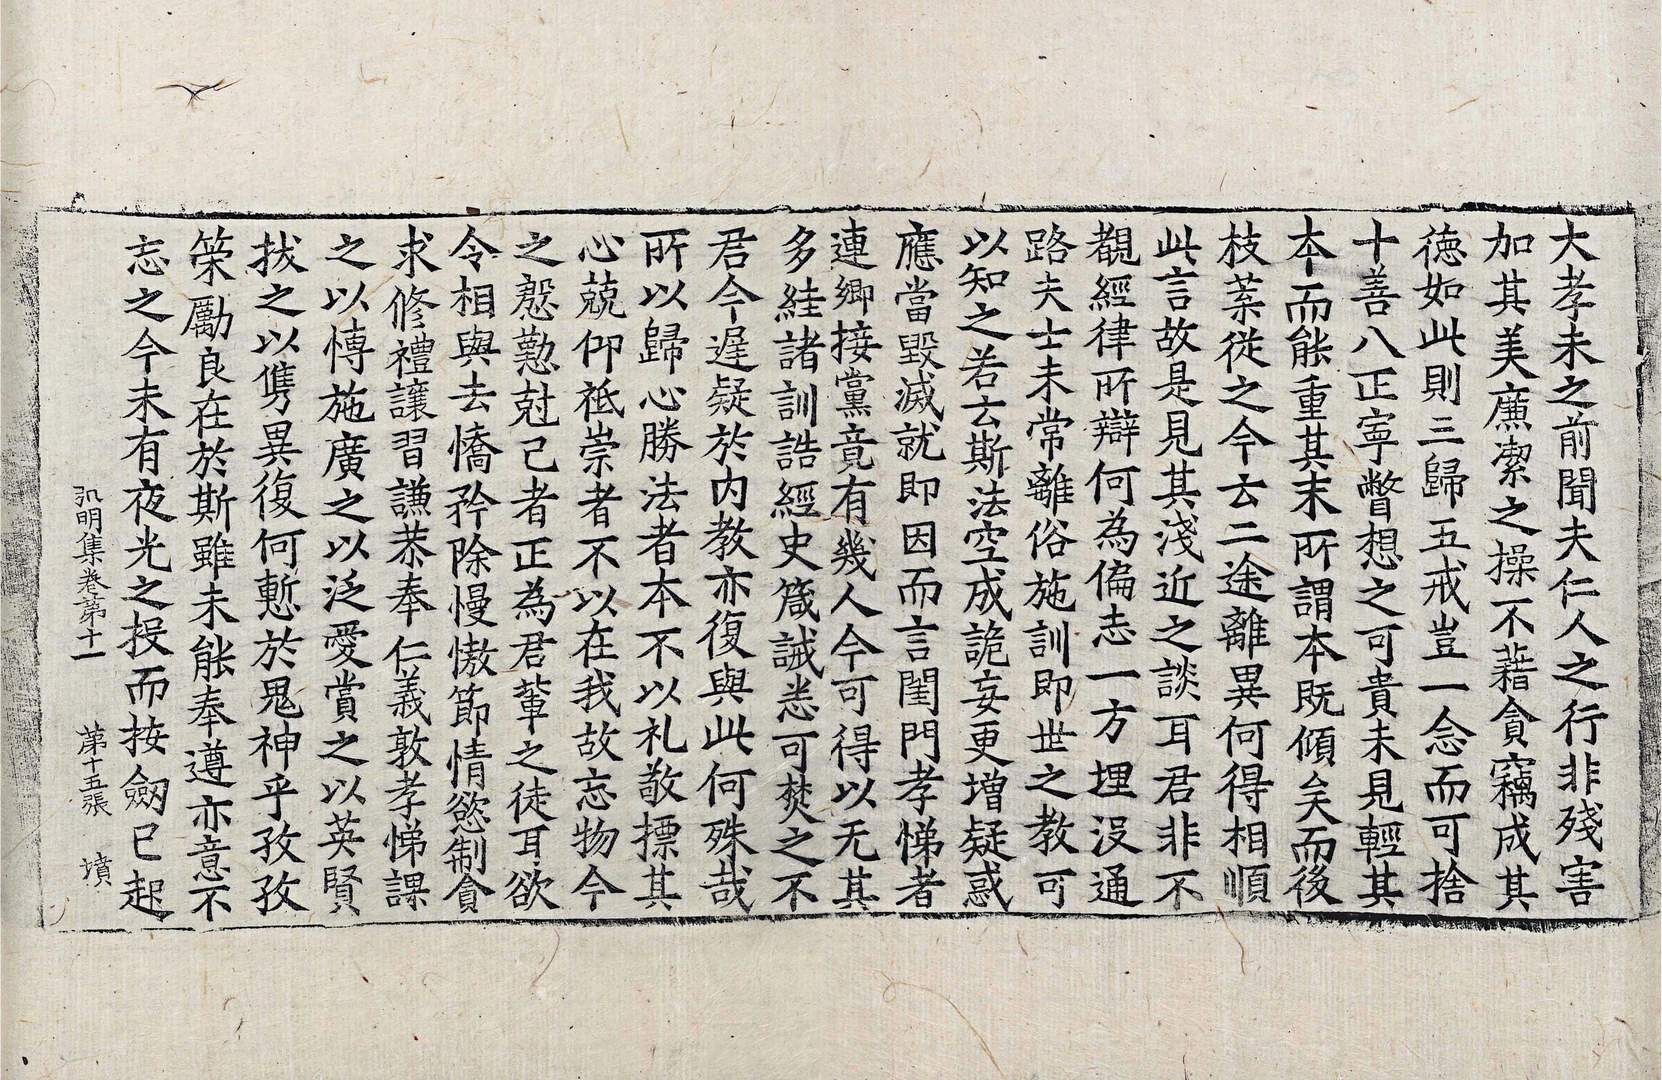 大孝未之前聞夫仁人之行非殘害
加其美廉潔之操不藉貪竊成其
德如此則三歸五戒豈一念而可捨
十善八正寧瞥想之可貴未見輕其
本而能重其末所謂本既傾矣而後
枝葉從之今云二途離異何得相順
此言故是見其淺近之談耳君非不
覩經律所辯何為偏志一方埋沒通
路夫士未常離俗施訓即世之教可
以知之若云斯法空成詭妄更增疑惑
應當毀滅就即因而言閨門孝悌者
連鄉接黨竟有幾人今可得以无其
多絓諸訓誥經史箴誡悉可焚之不
君今遲疑於內教亦復與此何殊哉
所以歸心勝法者本不以礼敬摽其
心兢仰祗崇者不以在我故忘物今
之慇懃剋己者正為君輩之徒耳欲
令相與去憍矜除慢慠節情慾制貪
求修禮讓習謙恭奉仁義敦孝悌課
之以博施廣之以泛愛賞之以英賢
拔之以儁異復何慙於鬼神乎孜孜
策勵良在於斯雖未能奉遵亦意不
忘之今未有夜光之投而按劒已起
弘明集卷第十一 第十五張 墳